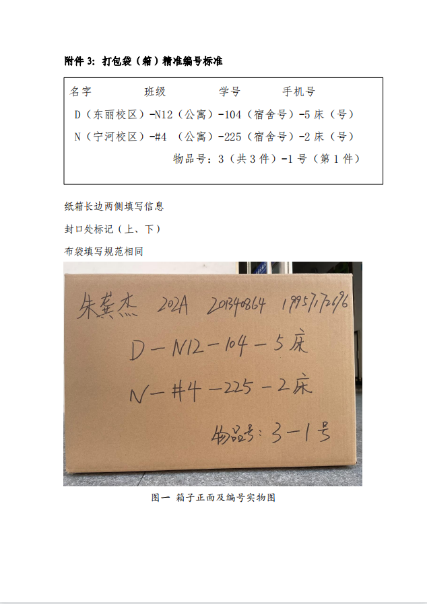 附件 3：打包袋（箱）精准编号标准
名字 班级 学号 手机号
D（东丽校区）-N12（公寓）-104（宿舍号）-5 床（号）
N（宁河校区）-#4 （公寓）-225（宿舍号）-2 床（号）
物品号：3（共 3 件）-1 号（第 1 件）
纸箱长边两侧填写信息
封口处标记（上、下）
布袋填写规范相同
朱龚杰 202A
D-N12-104-5床
N-#4-225-2床
物品号：3-1号
图一 箱子正面及编号实物图